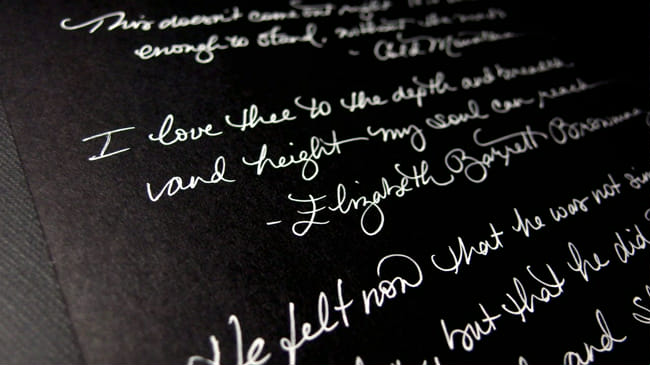 This doesn't come out right
enough to stand, without the
- Cold Mountain
I love thee to the depth and breadth
and height my soul can reach
- Elizabeth Barrett Browning
He felt now that he was not sim
but that he did
and